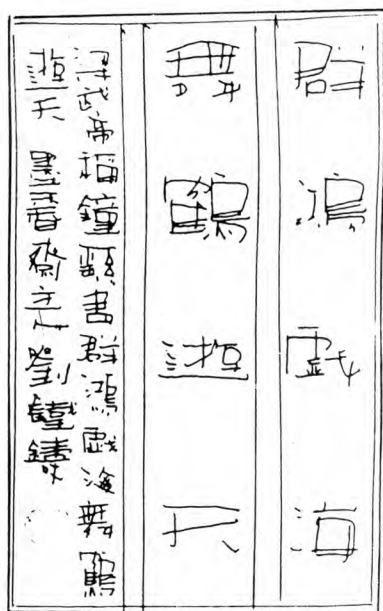 群鴻戲海
舞鶴遊天
梁武帝稱鐘繇書群鴻戲海舞鶴
遊天 墨香齋主劉鐵鑄